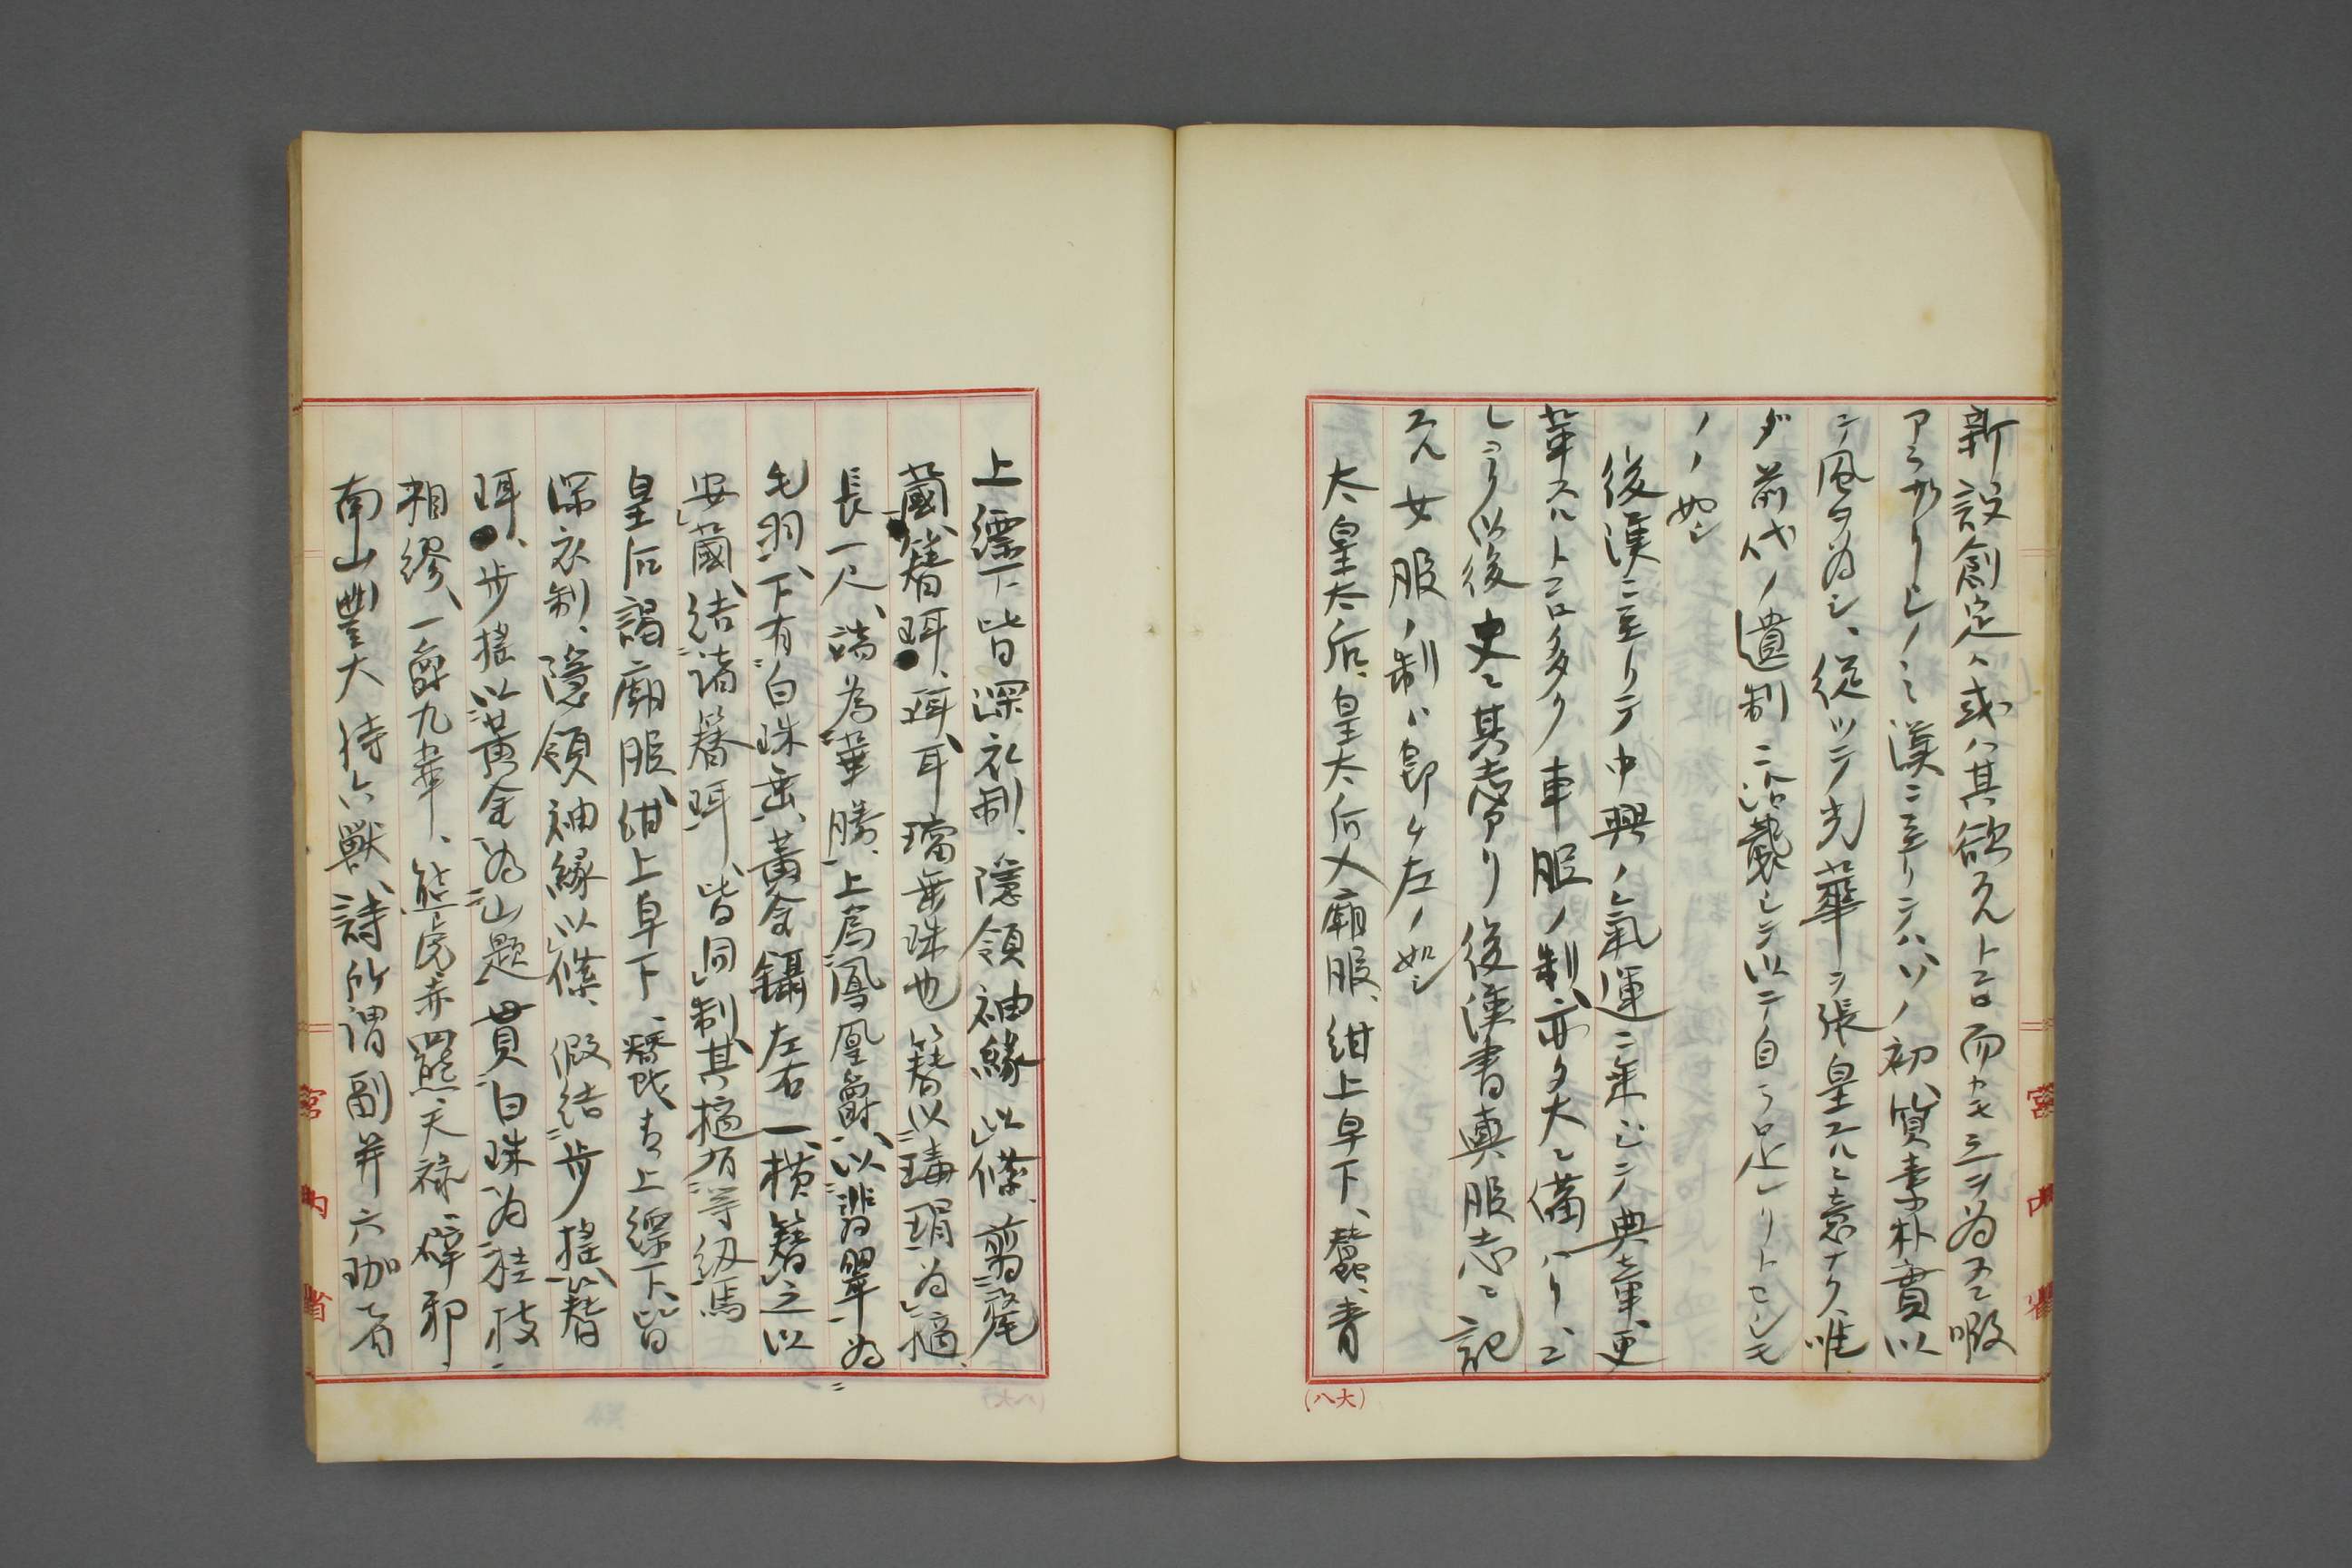 新設創定ハ或ハ其欲スル所而カモ之ヲ為スニ暇
アラザリシノミ漢ニ至リテハソノ初、質素朴實以
テ風ヲ為シ、從ツテ光華ヲ張皇スルニ意ナク、唯
ダ前代ノ遺制ニ沿襲シテ以テ自ラ足レリトセシモ
ノノ如シ
後漢ニ至リテ中興ノ氣運ニ乗ジテ典章更
革スル所多ク車服ノ制亦タ大ニ備ハリ、コ
レヨリ以後史ニ其志アリ後漢書輿服志ニ記
スル女服ノ制ハ即チ左ノ如シ
太皇太后、皇太后入廟服、紺上皁下、蠶、青
上縹下、皆深衣制、隱領袖緣以絛、翦氂
蔮、簪珥、珥、耳璫垂珠也、簪以瑇瑁為擿、
長一尺、端為華勝、上為鳳凰爵、以翡翠為
毛羽、下有白珠垂、黃金鑷左右一、橫簪之以
安蔮結、諸簪珥、皆同制、其擿有等級焉
皇后謁廟服、紺上皁下、蠶、青上縹下、皆
深衣制、隱領袖緣以絛、假結步搖、簪
珥、步搖以黃金為山題貫白珠為桂枝
相繆、一爵九華、熊虎赤羆天祿辟邪
南山豐大特六獸、詩所謂副笄六珈者
宮内省
宮内省
(八大)